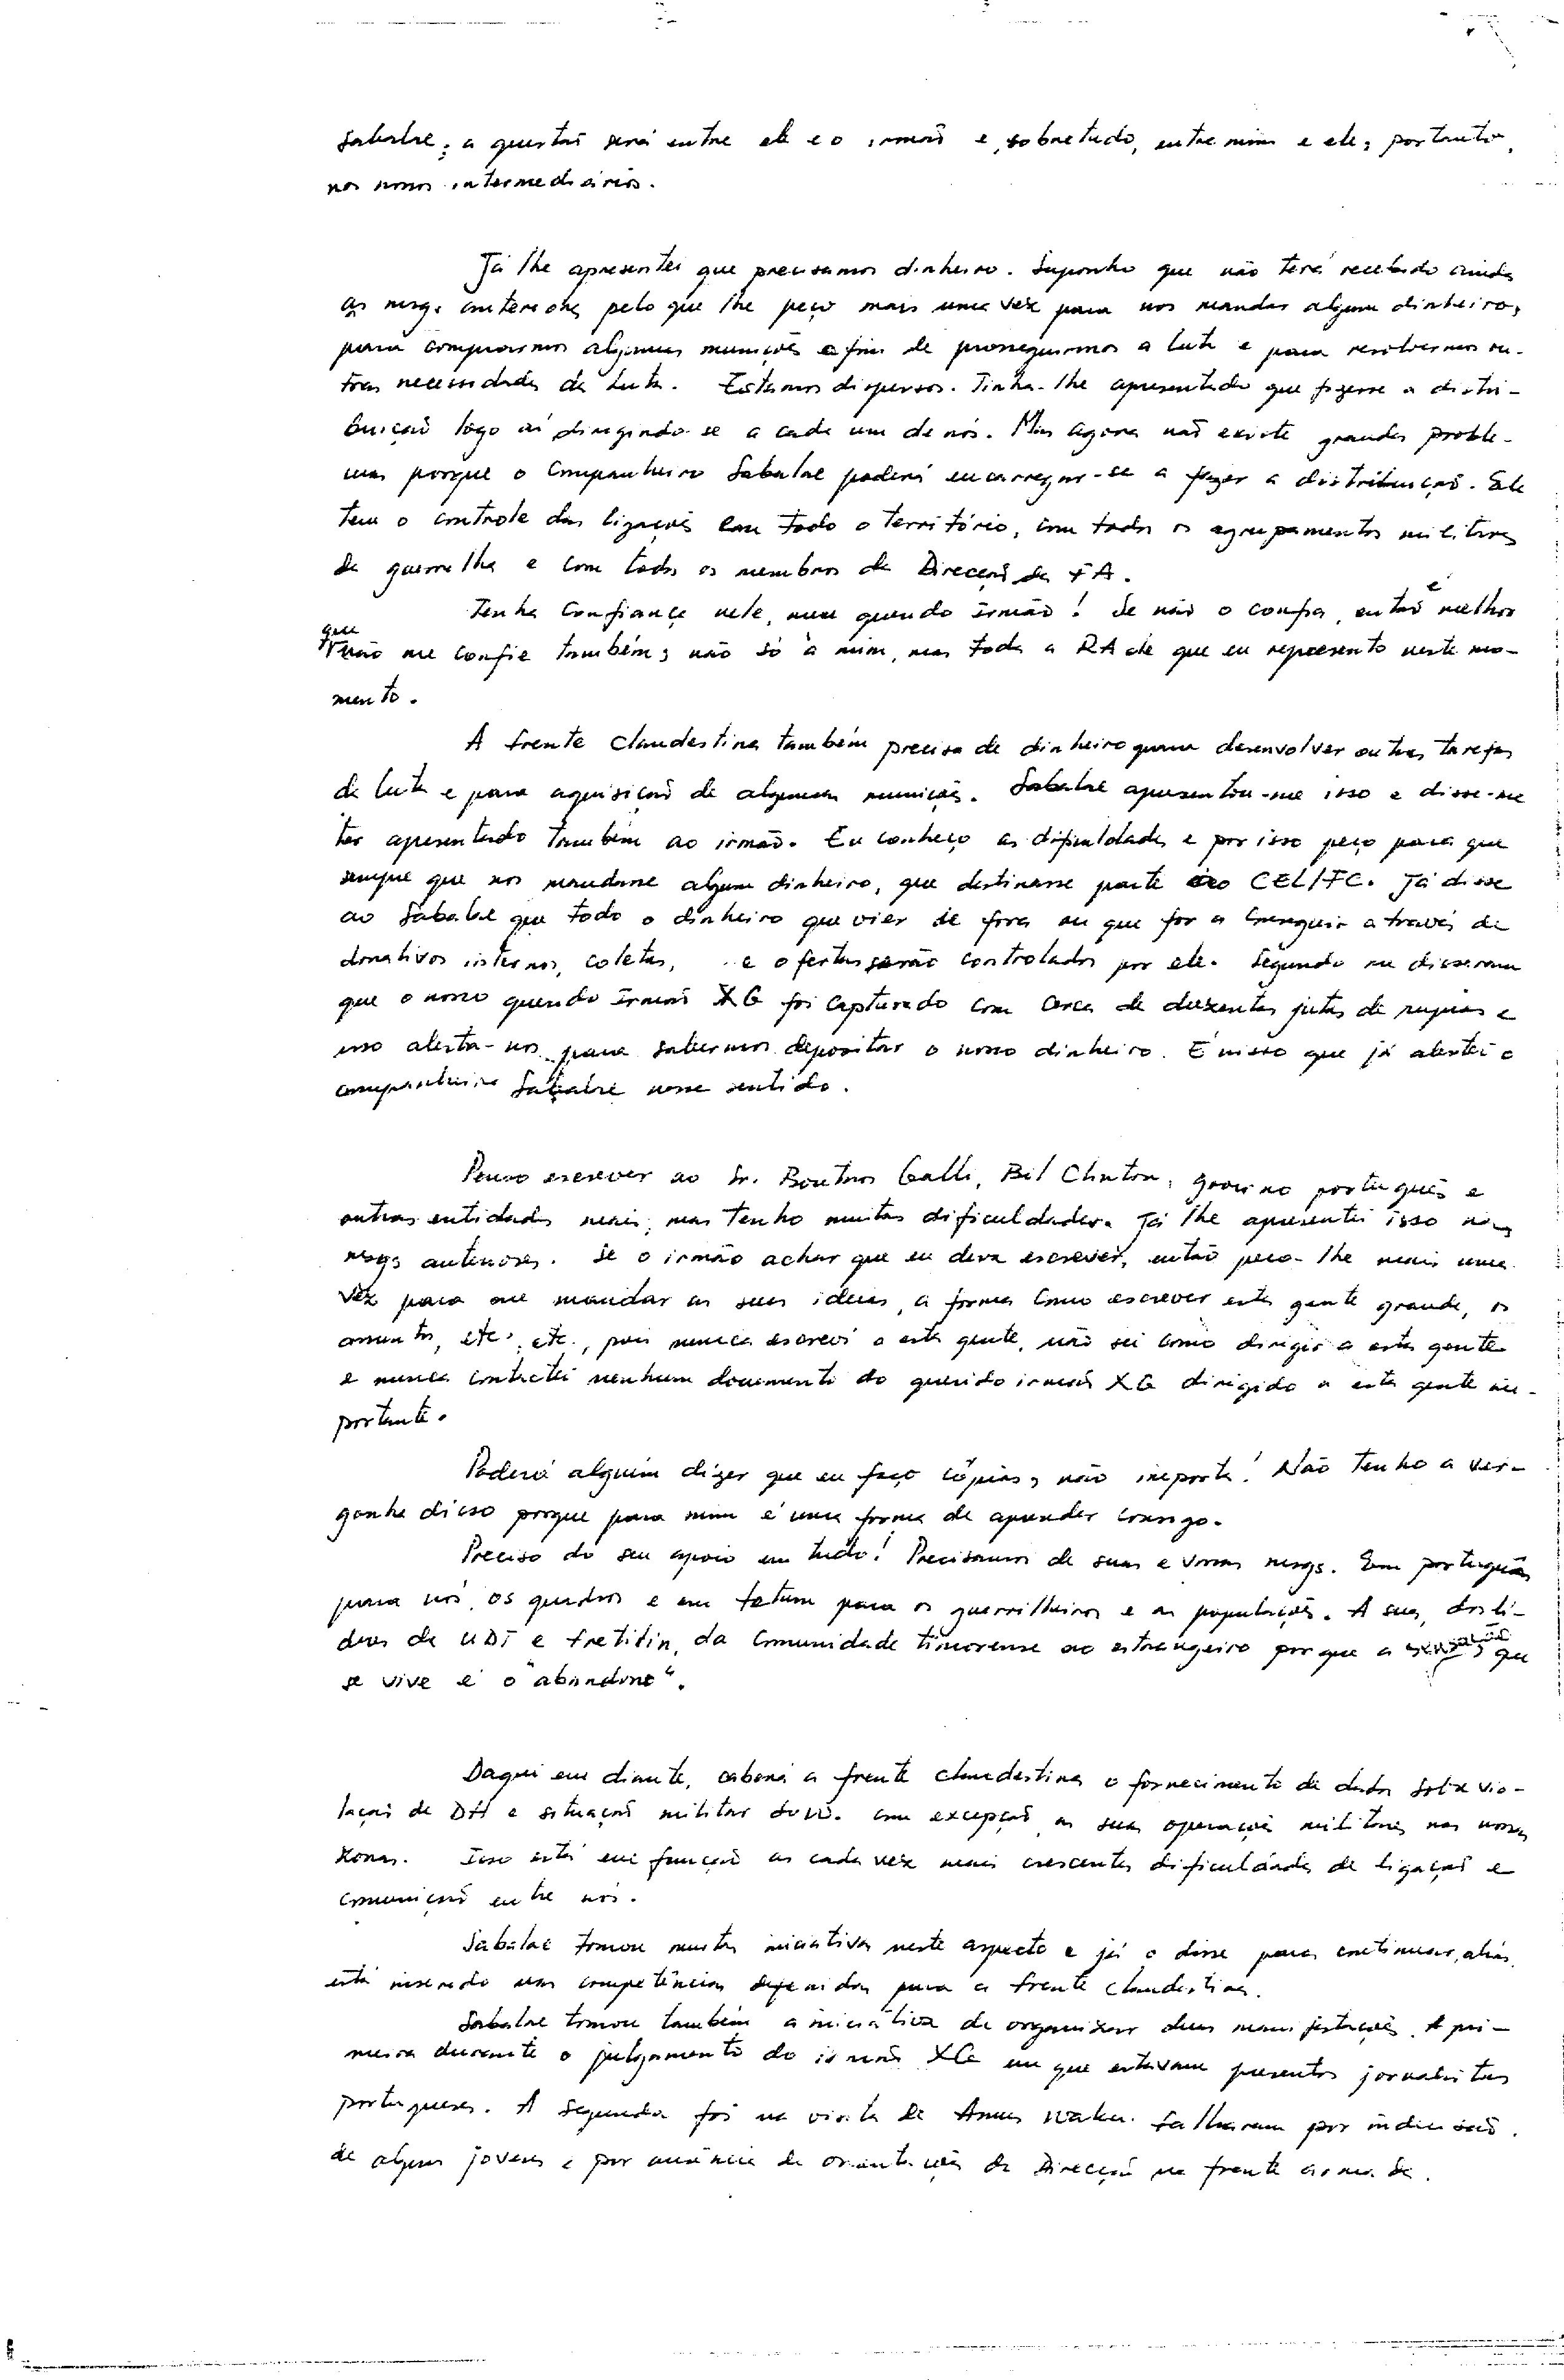 Sabalae; a questão será entre ele e o irmão e, sobretudo, entre mim e ele, portanto,
nos nossos intermediários.
Já lhe apresentei que precisamos dinheiro. Suponho que não terá recebido ainda
as msgs anteriores pelo que lhe peço mais uma vez para nos mandar algum dinheiro,
para comprarmos algumas munições a fim de prosseguirmos a luta e para resolvermos ou-
tras necessidades da luta. Estamos dispersos. Tinha-lhe apresentado que fizesse a distri-
buição logo aí dirigindo-se a cada um de nós. Mas agora não existe grandes proble-
mas porque o Companheiro Sabalae poderá encarregar-se a fazer a distribuição. Ele
tem o controle das ligações em todo o território, com todos os agrupamentos militares
da guerrilha e com todos os membros da Direcção da FA.
Tenha confiança nele, meu querido Irmão! Se não o confia, então é melhor
que não me confie também; não só à mim, mas toda a RA de que eu represento neste mo-
mento.
A frente clandestina também precisa de dinheiro para desenvolver outras tarefas
da luta e para aquisição de algumas munições. Sabalae apresentou-me isso e disse-me
ter apresentado também ao irmão. Eu conheço as dificuldades e por isso peço para que
sempre que nos mandasse algum dinheiro, que destinasse parte ao CEL/FC. Já disse
ao Sabalae que todo o dinheiro que vier de fora ou que for a conseguir através de
donativos internos, coletas, e ofertas serão controlados por ele. Segundo me disseram
que o nosso querido Irmão XG foi capturado com cerca de duzentas jutas de rupias e
isso alerta-nos para sabermos depositar o nosso dinheiro. É nisso que já alertei o
companheiro Sabalae nesse sentido.
Penso escrever ao Sr. Boutros Galli, Bil Clinton, governo português e
outras entidades mais, mas tenho muitas dificuldades. Já lhe apresentei isso nas
msgs anteriores. Se o irmão achar que eu deva escrever, então peço-lhe mais uma
vez para me mandar as suas ideias, a forma como escrever esta gente grande, os
assuntos, etc, etc., pois nunca escrevi a esta gente, não sei como dirigir a esta gente
e nunca contactei nenhum documento do querido irmão XG dirigido a esta gente im-
portante.
Poderá alguém dizer que eu faço cópias, não importa! Não tenho a ver-
gonha disso porque para mim é uma forma de aprender consigo.
Preciso do seu apoio em tudo! Precisamos de suas e vossas msgs. Em português
para nós, os quadros e em tetum para os guerrilheiros e as populações. A sua, dos lí-
deres da UDT e Fretilin, da Comunidade timorense no estrangeiro porque a sensação que
se vive é o "abandono".
Daqui em diante, caberá a frente clandestina o fornecimento de dados sobre vio-
lação de DH e situação militar do in. com excepção as suas operações militares nas nossas
zonas. Isso está em função as cada vez mais crescentes dificuldades de ligação e
comunição entre nós.
Sabalae tomou muitas iniciativas neste aspecto e já o disse para continuar, aliás,
está inserido nas competências definidas para a frente clandestina.
Sabalae tomou também a iniciativa de organizar duas manifestações. A pri-
meira durante o julgamento do irmão XG em que estavam presentes jornalistas
portugueses. A segunda foi na visita de Amos Wako. Falharam por indecisão
de alguns jovens e por ausência de orientações da Direcção na frente armada.